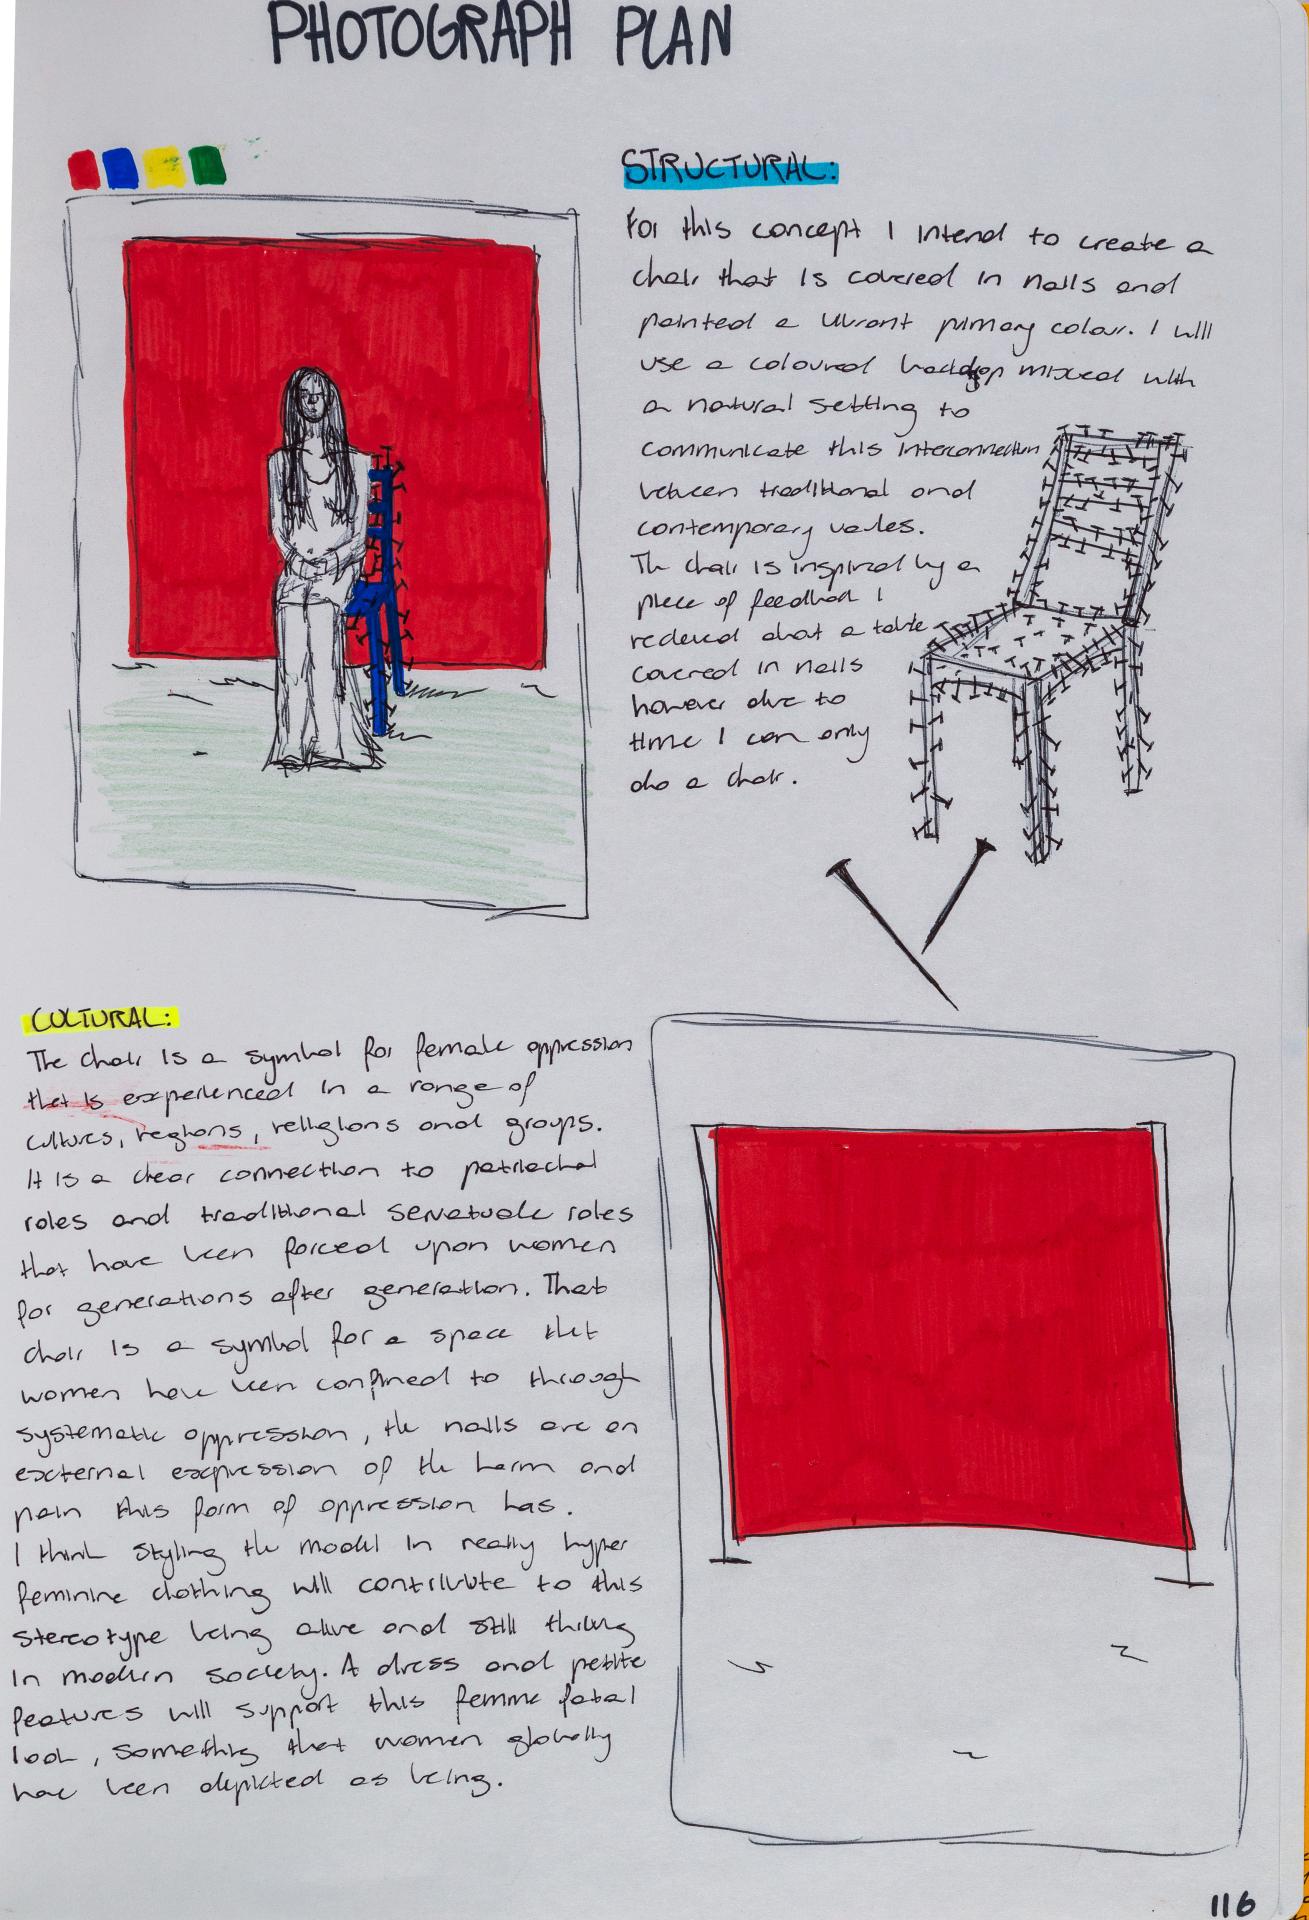 PHOTOGRAPH PLAN
STRUCTURAL:
For this concept I intend to create a
chair that is covered in nails and
painted a vibrant primary colour. I will
use a coloured backdrop mixed with
a natural setting to
communicate this interconnection
between traditional and
contemporary values.
The chair is inspired by a
piece of feedback I
recieved about a table
covered in nails
however due to
time I can only
do a chair.
CULTURAL:
The chair is a symbol for female oppression
that is experienced in a range of
cultures, regions, religions and groups.
It is a clear connection to patriachal
roles and traditional servatude roles
that have been forced upon women
for generations after generation. That
chair is a symbol for a space that
women have been confined to through
systematic oppression, the nails are an
external expression of the harm and
pain this form of oppression has.
I think styling the model in really hyper
feminine clothing will contribute to this
stereotype being alive and still thriving
in modern society. A dress and petite
features will support this femme fatal
look, something that women globally
have been depicted as being.
116